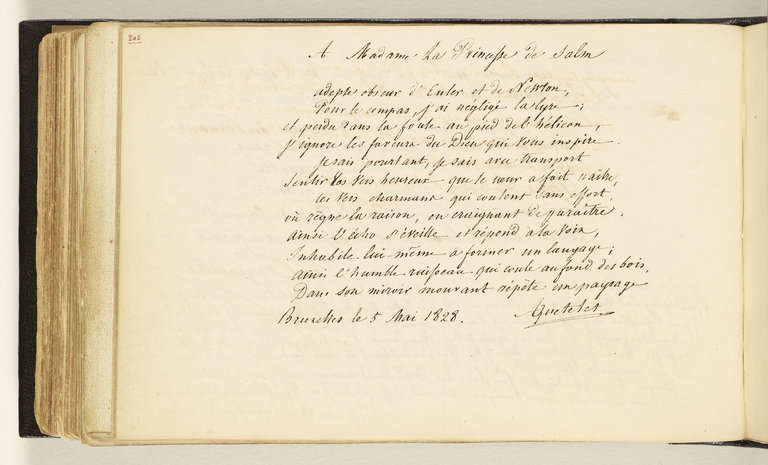 202
A Madame La Princesse de Salm
adepte obscur d'Euler et de Newton,
Pour le compas, j'ai négligé la lyre;
et perdu dans la foule au pied de l'hélicon,
J'ignore les faveurs du Dieu qui vous inspire.
Je sais pourtant, je sais avec transport
Sentir vos vers heureux que le cœur a fait naître,
Ces vers charmans qui coulent sans effort,
où règne la raison, en craignant de paraître.
ainsi l'écho s'éveille et répond à la voix,
Inhabile lui-même à former un langage;
ainsi l'humble ruisseau qui coule au fond des bois,
Dans son miroir mouvant répète un paysage
Bruxelles le 5 Mai 1828. Quetelet